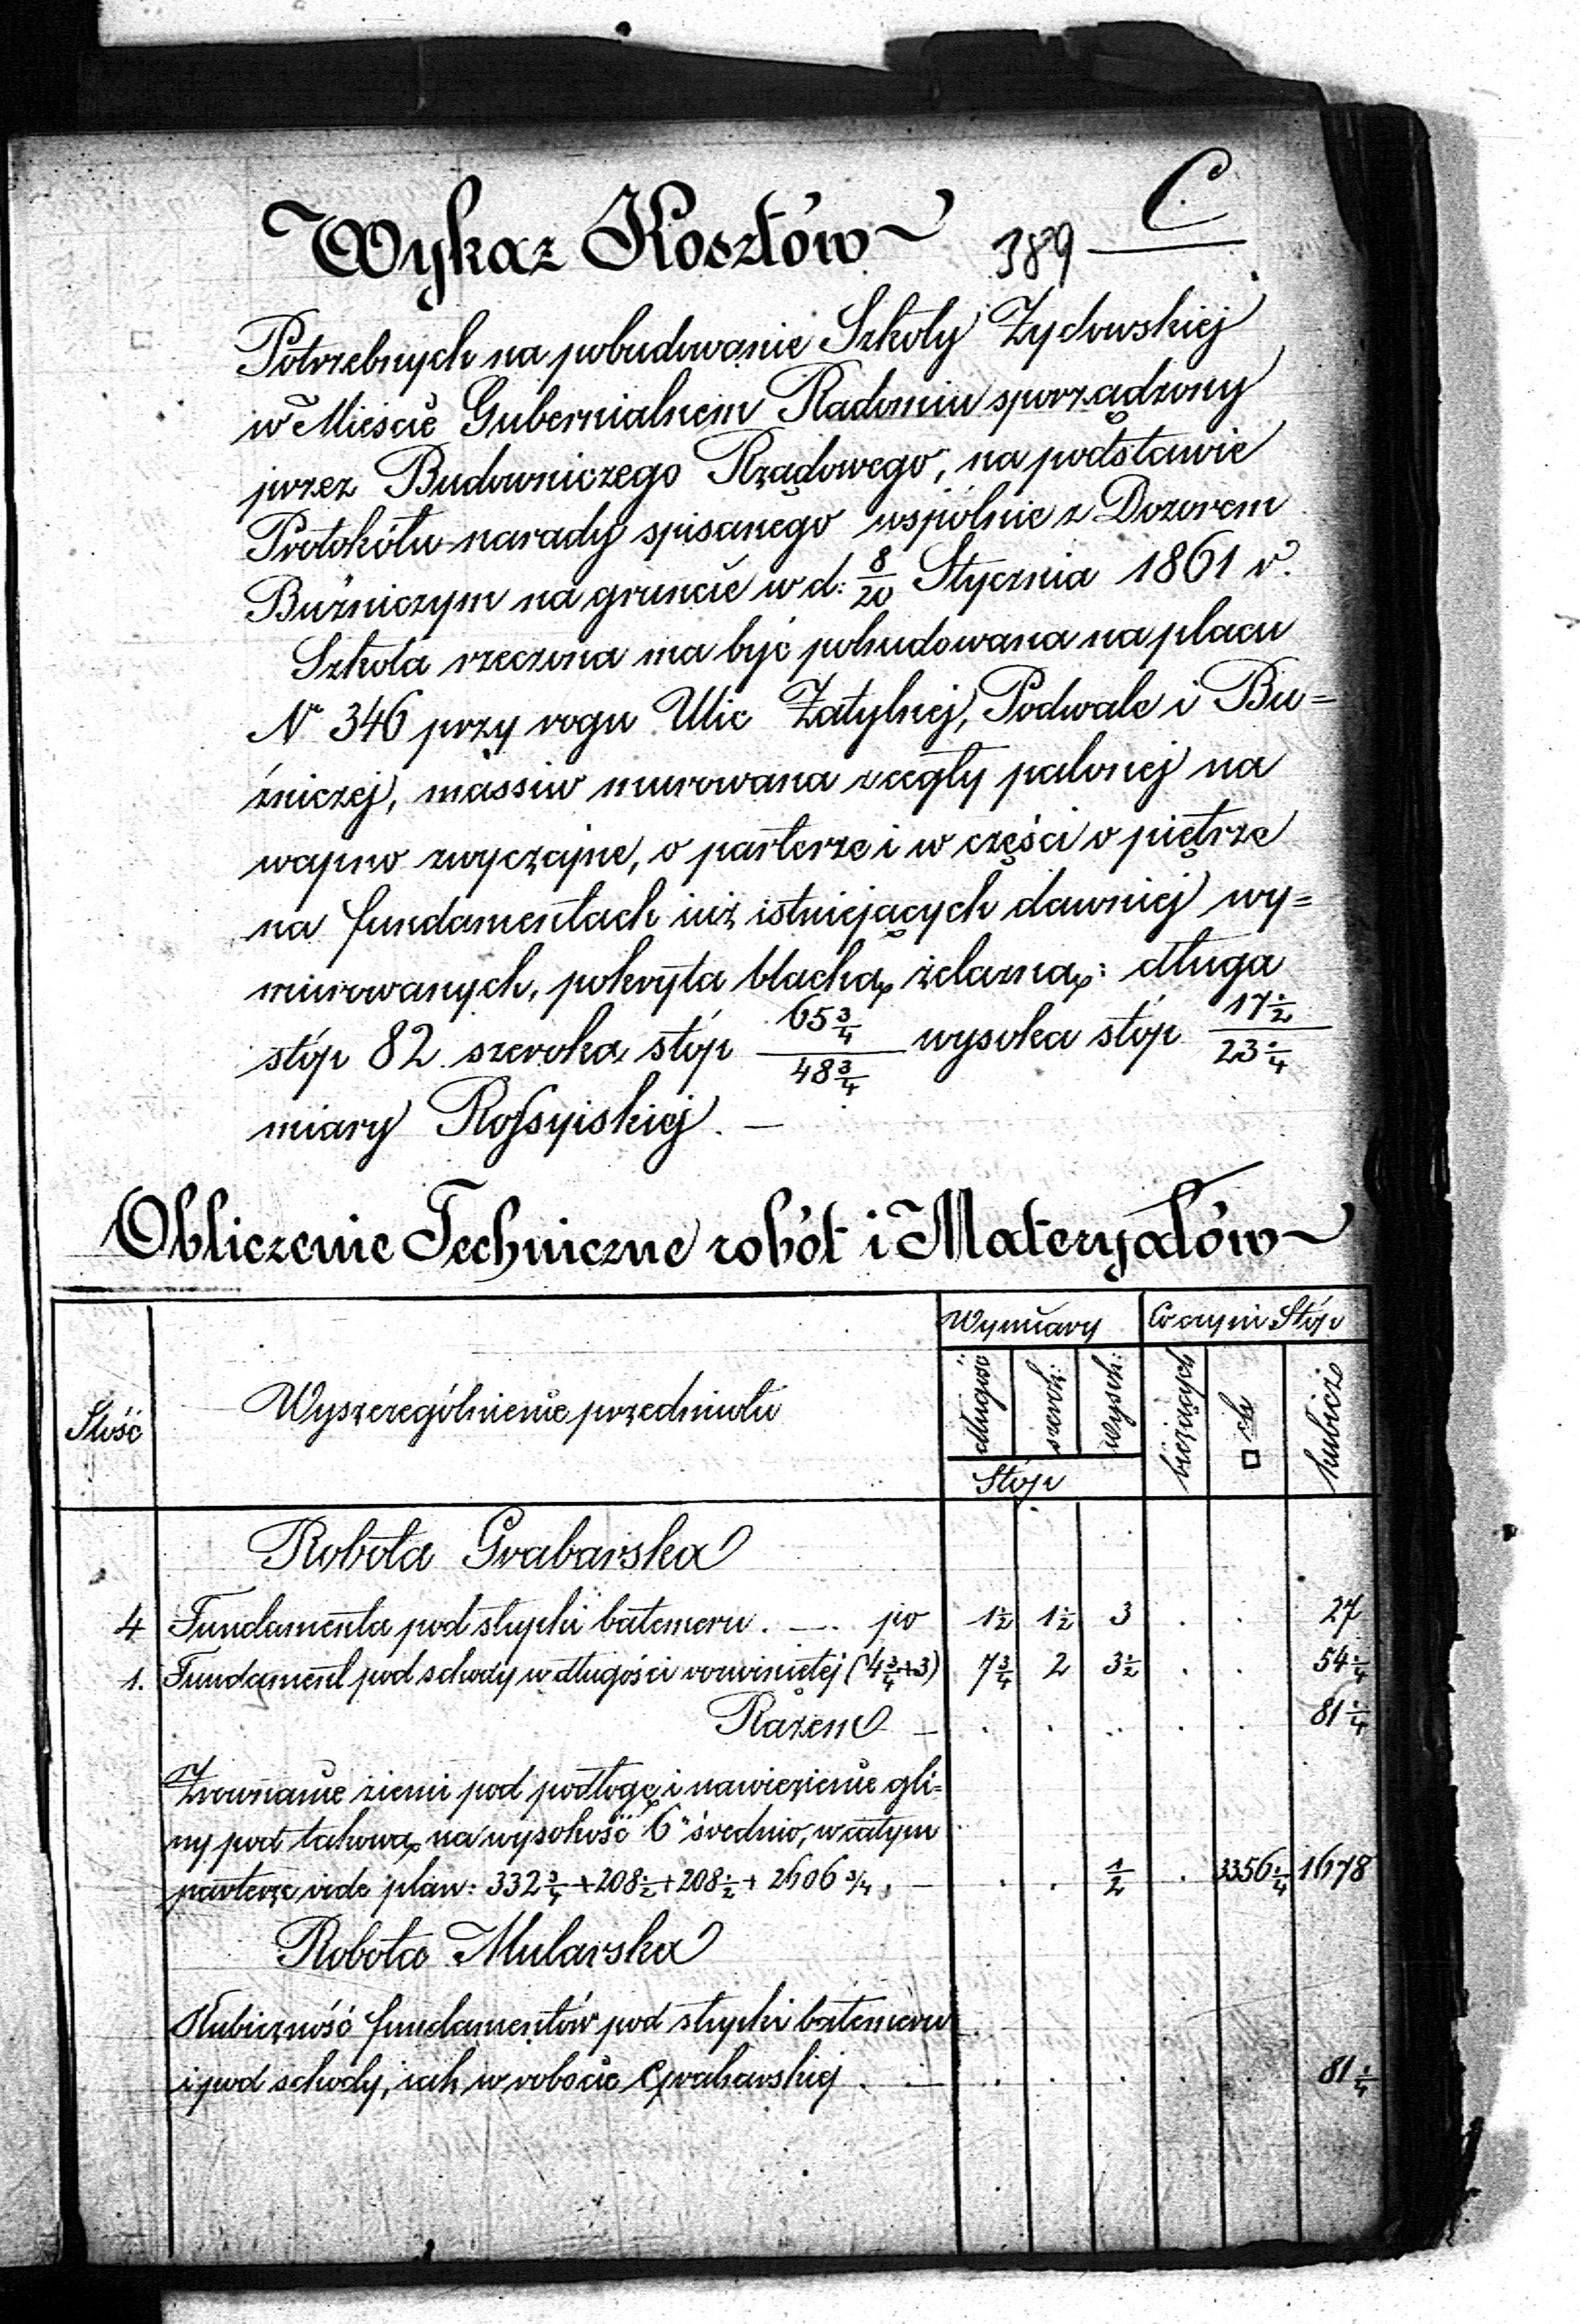 C
Wykaz Kosztów 389
Potrzebnych na pobudowanie Szkoły Żydowskiej
w Mieście Gubernialnem Radomiu sporządzony
przez Budowniczego Rządowego, na podstawie
Protokółu narady spisanego wspólnie z Dozorem
Bużniczym na gruncie w d: 8/20 Stycznia 1861 r.
Szkoła rzeczona ma być pobudowana na placu
N 346 przy rogu Ulic Zatylnej, Podwale i Bu=
żniczej, massiw murowana z cegły palonej na
wapno zwyczajne, o parterze i w części o piętrze
na fundamentach iuż istniejących dawniej wy=
murowanych, pokryta blachą żelazną: długa
stóp 82 szeroka stóp 65 3/4 / 48 3/4 wysoka stóp 17 1/2 / 23 1/4
miary Rossyiskiej. —
Obliczenie Techniczne robót i Materyałów
Ilość Wyszczególnienie przedmiotu Wymiary Co czyni Stóp
długość szerok: wysok: bieżących □ch kubicz
Stóp
Robota Grabarska
4 Fundamenta pod słupki batemeru . — . po 1 1/2 1 1/2 3 . . 27
1. Fundament pod schody w długości rozwiniętej (4 3/4 + 3) 7 3/4 2 3 1/2 . . 54 1/4
Razem — . . . . . 81 1/4
Zrównanie ziemi pod podłogę i nawiezienie gli=
ny pod takową na wysokość 6" średnio, w całym
parterze vide plan: 332 3/4 + 208 1/2 + 208 1/2 + 2606 3/4 . — . . 1/2 . 3356 1/4 1678
Robota Mularska
Kubiczność fundamentów pod słupki batemeru
i pod schody, iak w robocie Grabarskiej . — . . . . . 81 1/4